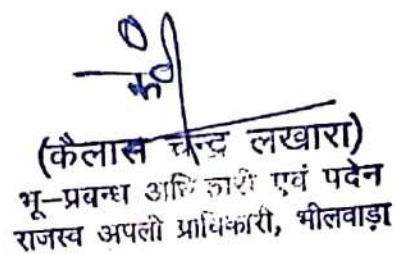 (कैलास चन्द्र लखारा)
भू–प्रबन्ध अधिकारी एवं पदेन
राजस्व अपली प्राधिकारी, भीलवाड़ा